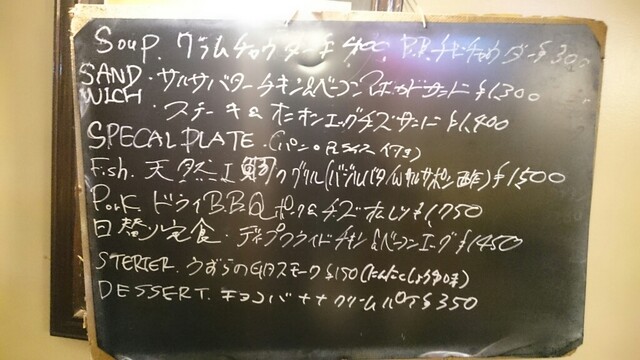 Soup. クラムチャウダー $400. B.B.チャウダー $300
SAND WICH・サルサバターチキン&ベーコン サンド $1,300
・ステーキ&オニオンエッグチーズサンド $1,400
SPECALPLATE・(パン or ライス付き)
Fish. 天然 グリル(バジルバター ポン酢) $1,500
Pork ドライB.B.Q ポーク&チーズ $1750
日替り定食・ディープフライドチキン&ベーコンエッグ $1450
STERTER. うずらの スモーク $150(にんにくしょうゆ味)
DESSERT. チョコバナナクリームパイ $350